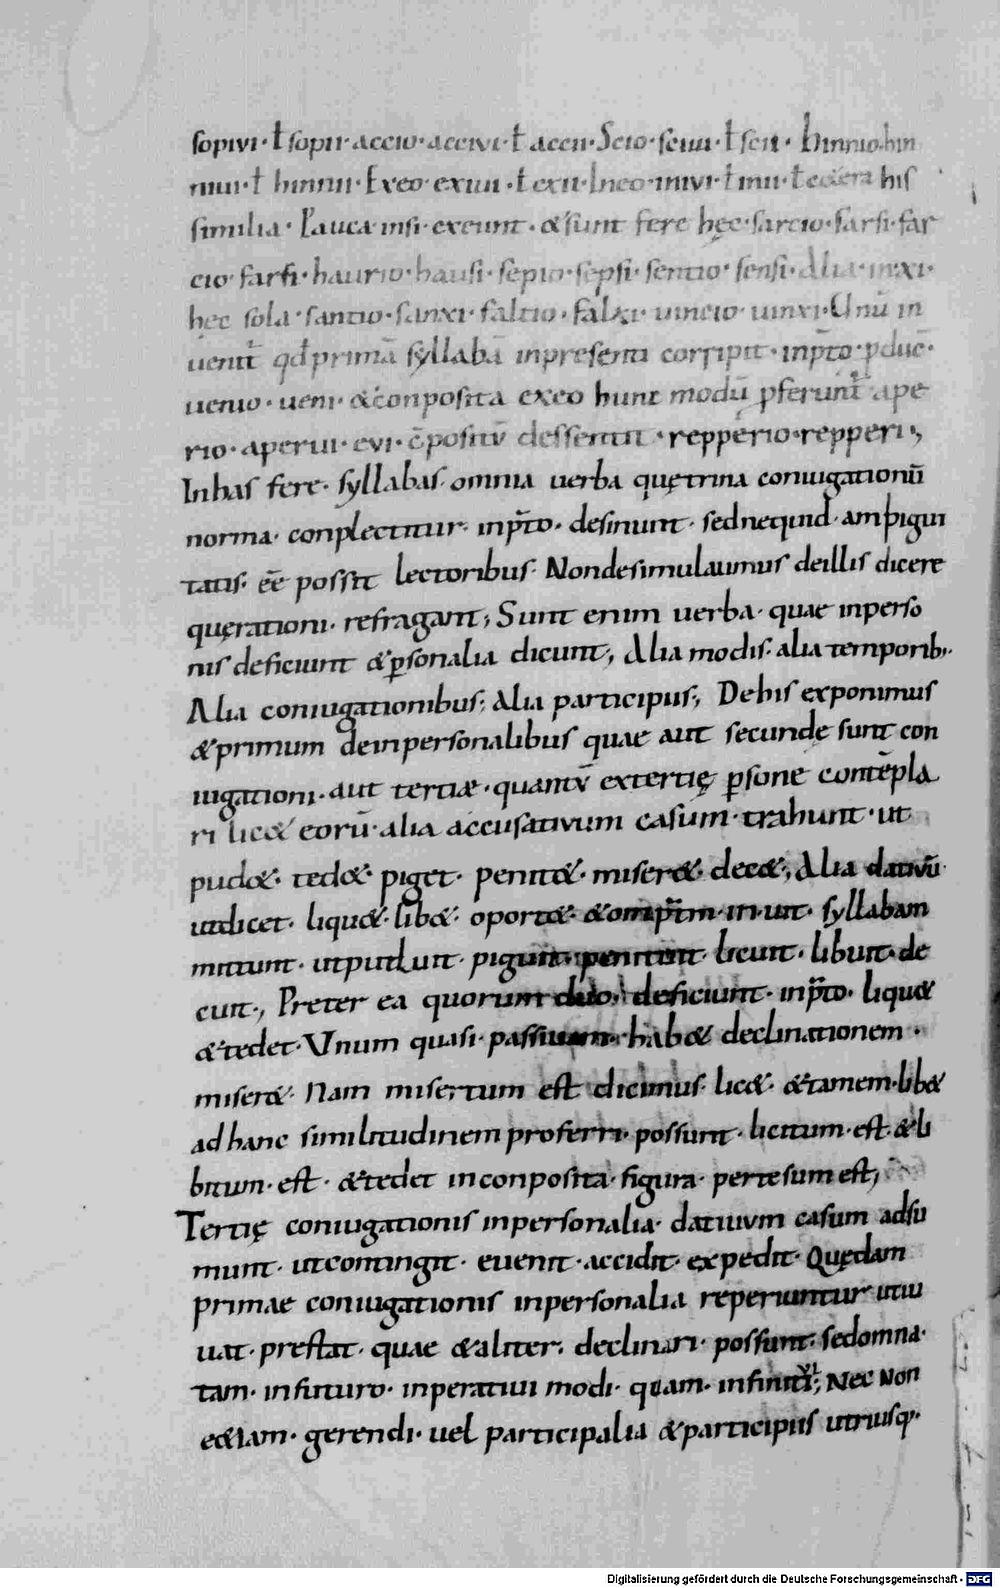 sopivi · ł sopii · accio · accivi · ł accii · Scio · scivi · ł scii · hinnio · hin
nivi · ł hinnii · Exeo exivi · ł exii · Ineo · inivi · ł inii · ł cetera his
similia · Pauca insi · exeunt · & sunt fere hęc · sarcio · sarsi · far
cio · farsi · haurio · hausi · sepio · sepsi · sentio · sensi · Alia · inxi ·
hęc sola · sancio · sanxi · falcio · falxi · uincio · uinxi · Unū in
uenit̄ qđ primā syllabā inpresenti corripit · inp̄to · p̄duc̄ ·
uenio · ueni · & conposita exeo hunc modū p̄ferunt̄ ape
rio · aperui · evi · c̄positū dessentit · repperio · repperi ;,
Inhas fere · syllabas · omnia uerba quętrina coniugationū
norma · conplectitur · inp̄to · desinunt · sednequid · ambigui
tatis · eē possit lectoribus · Nondesimulauimus deillis dicere
quęrationi · refragant ; Sunt enim uerba · quae inperso
nis deficiunt & ꝑsonalia dicunt ; Alia modis · alia temporib; ·
Alia coniugationibus ; Alia participiis ; De his exponimus
& primum deinpersonalibus quae aut secundę sunt con
iugationi · aut tertiæ · quantū extertię ꝑsone contēpla
ri lic& eorū · alia accusativum casum · trahunt · ut
pud& · ted& · piget · penit& · miser& · dec& ; Alia dativū
utdicet · liqu& · lib& · oport& · & omnp̄tm · in · uit · syllabam
mittunt · utpuduit · piguit · penituit · licuit · libuit · de
cuit ; Preter ea quorum duo · deficiunt · inp̄to · liqu&
& tedet · Unum quasi · passiuam · hab& declinationem ·
miser& · Nam misertum est dicimus · lic& · & tamem · lib&
ad hanc similitudinem proferri · possunt · licitum · est · & li
bitum · est · & tedet inconposita · figura · pertesum est ;
Tertię coniugationis inpersonalia · datiuum casum adsu
munt · utcontingit · euenit · accidit · expedit · Quędam
primae coniugationis inpersonalia reperiuntur utiu
uat · prestat · quae & aliter · declinari · possunt · sedomna ·
tam · infuturo · inperatiui modi · quam · infiniti ; Nec Non
e&iam · gerendi · uel participalia & participiis utriusq; ·
Digitalisierung gefördert durch die Deutsche Forschungsgemeinschaft - DFG